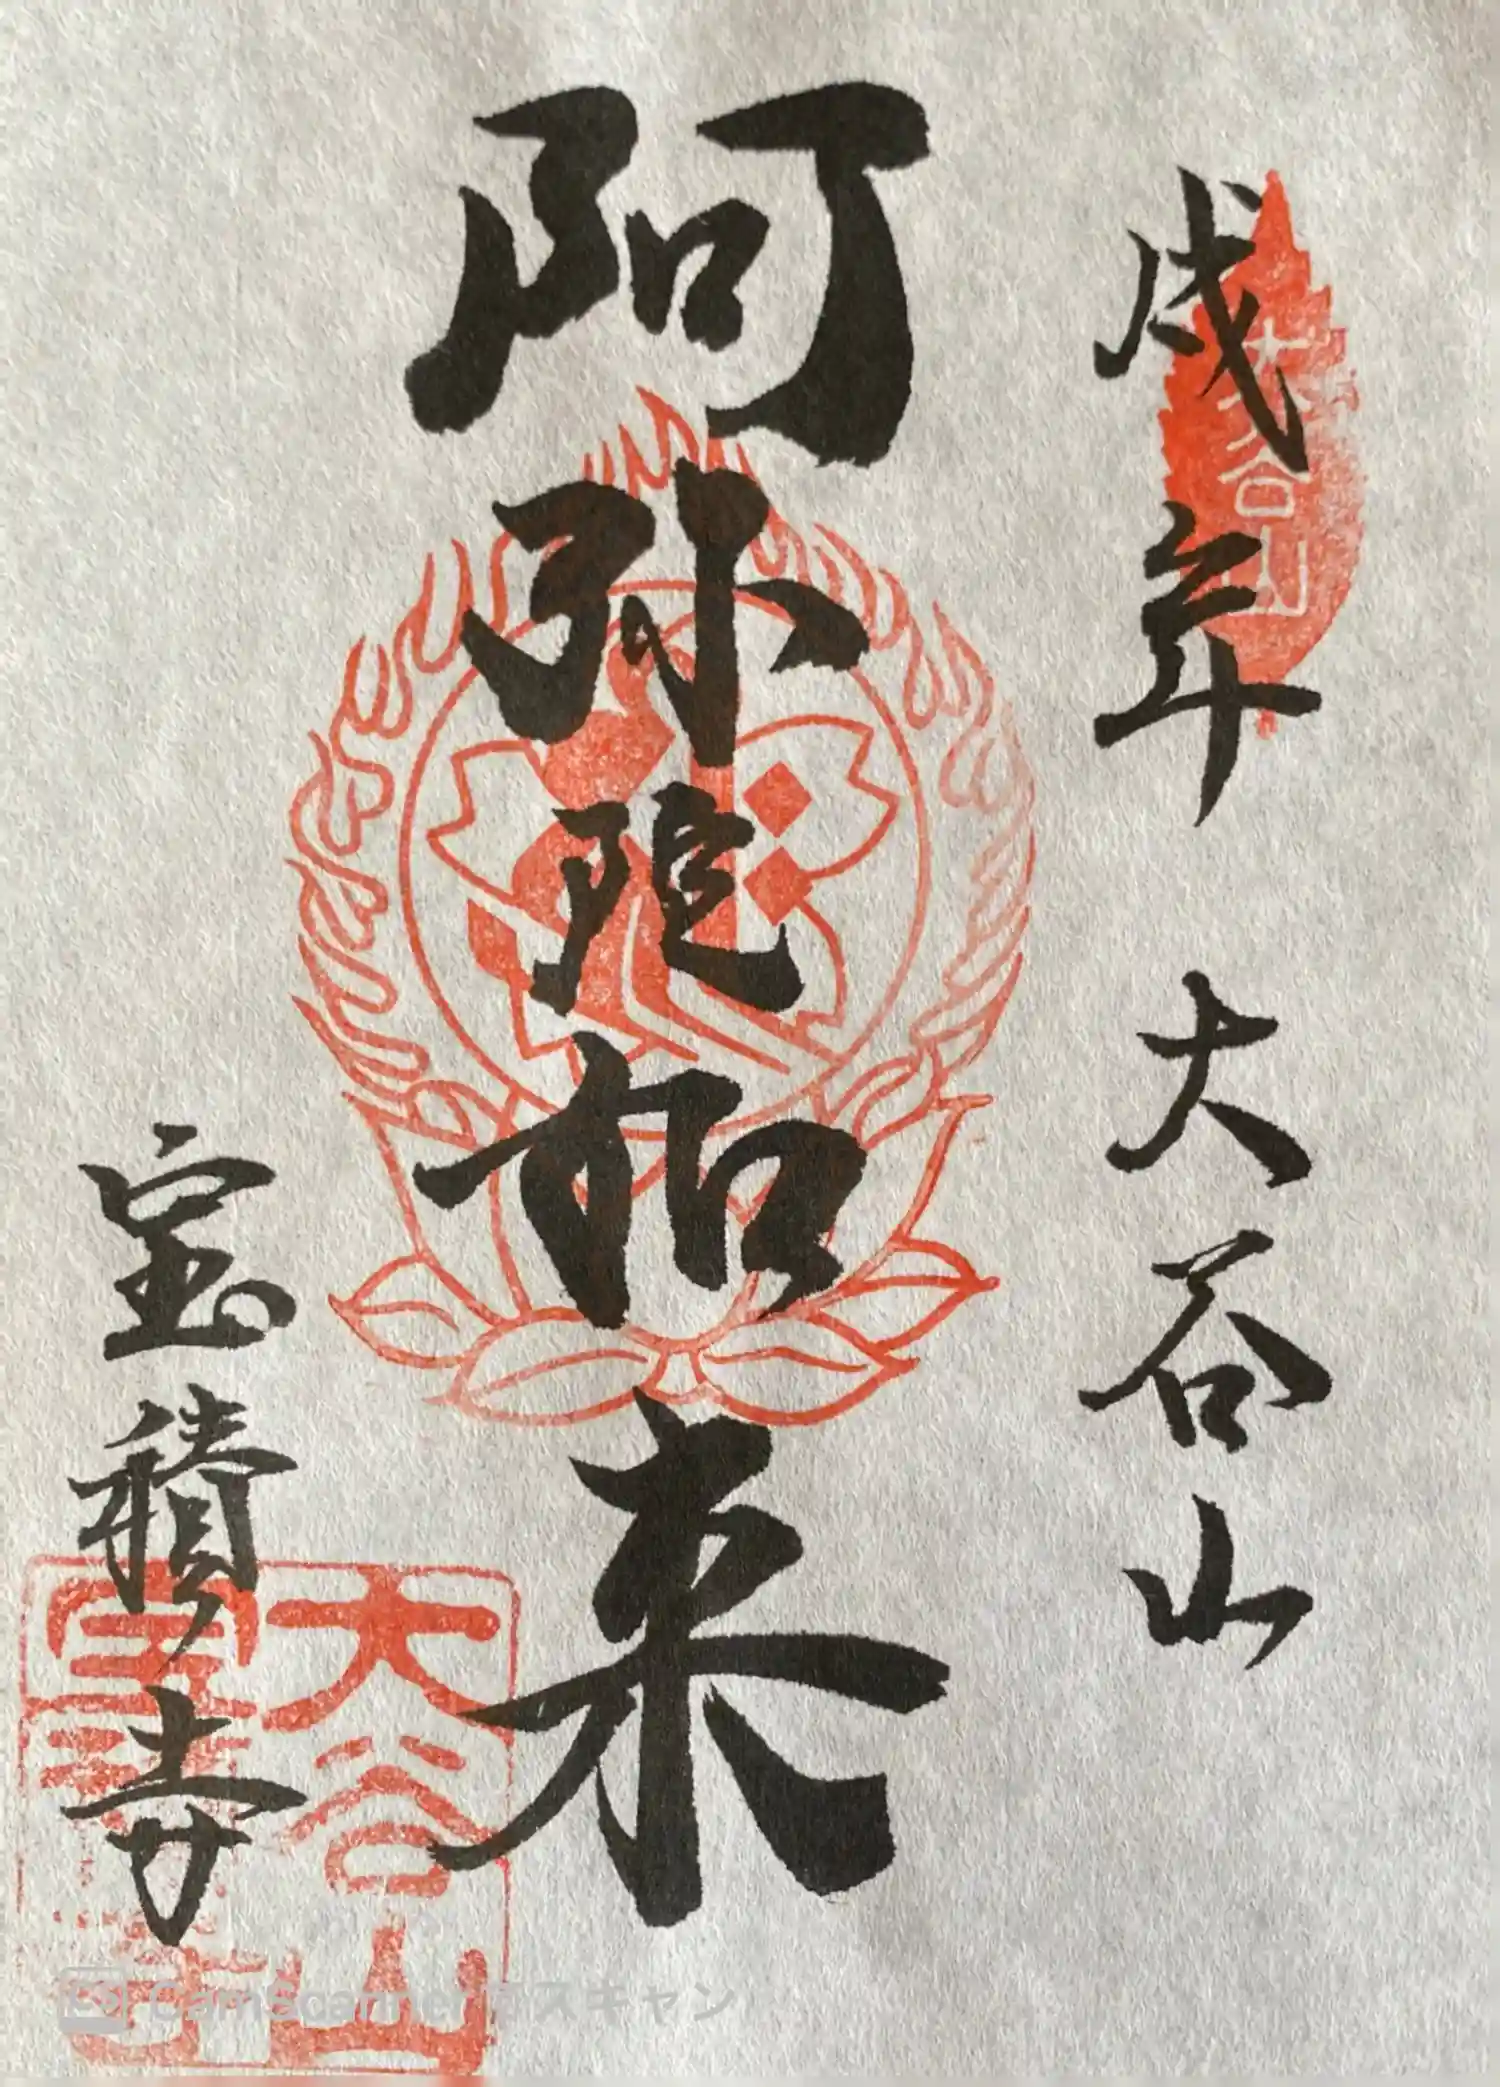 戌年 大谷山
阿弥陀如来
宝積寺
大谷山
大谷山
CamScanner でスキャン